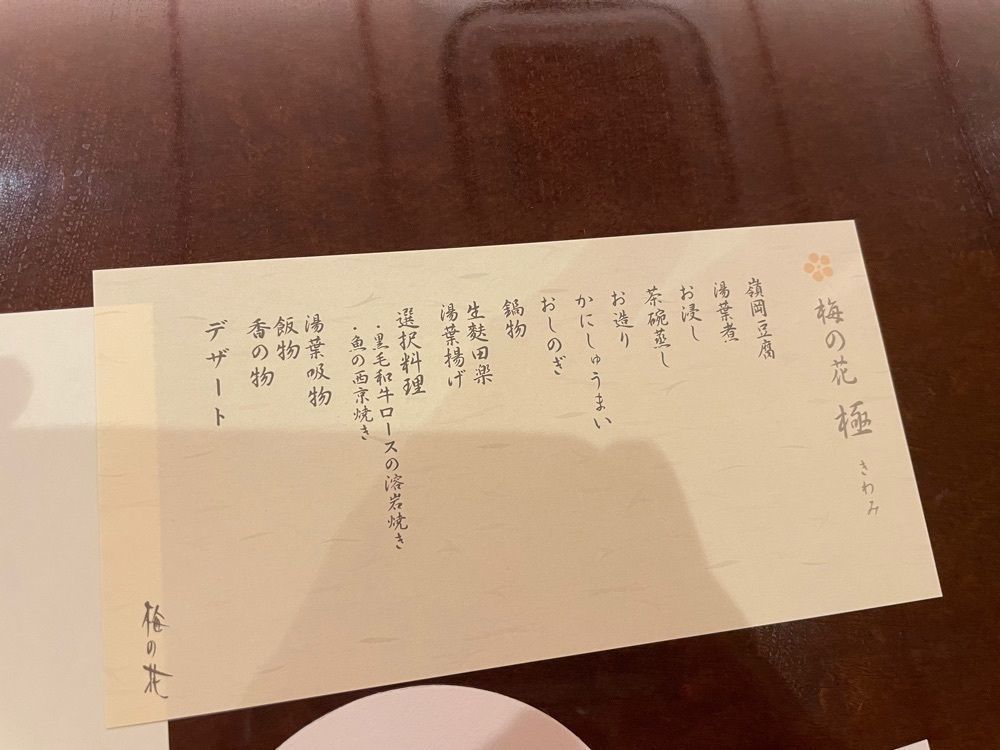 梅の花 極 きわみ
嶺岡豆腐
湯葉煮
お浸し
茶碗蒸し
お造り
かにしゅうまい
おしのぎ
鍋物
生麩田楽
湯葉揚げ
選択料理
・黒毛和牛ロースの溶岩焼き
・魚の西京焼き
湯葉吸物
飯物
香の物
デザート
梅の花